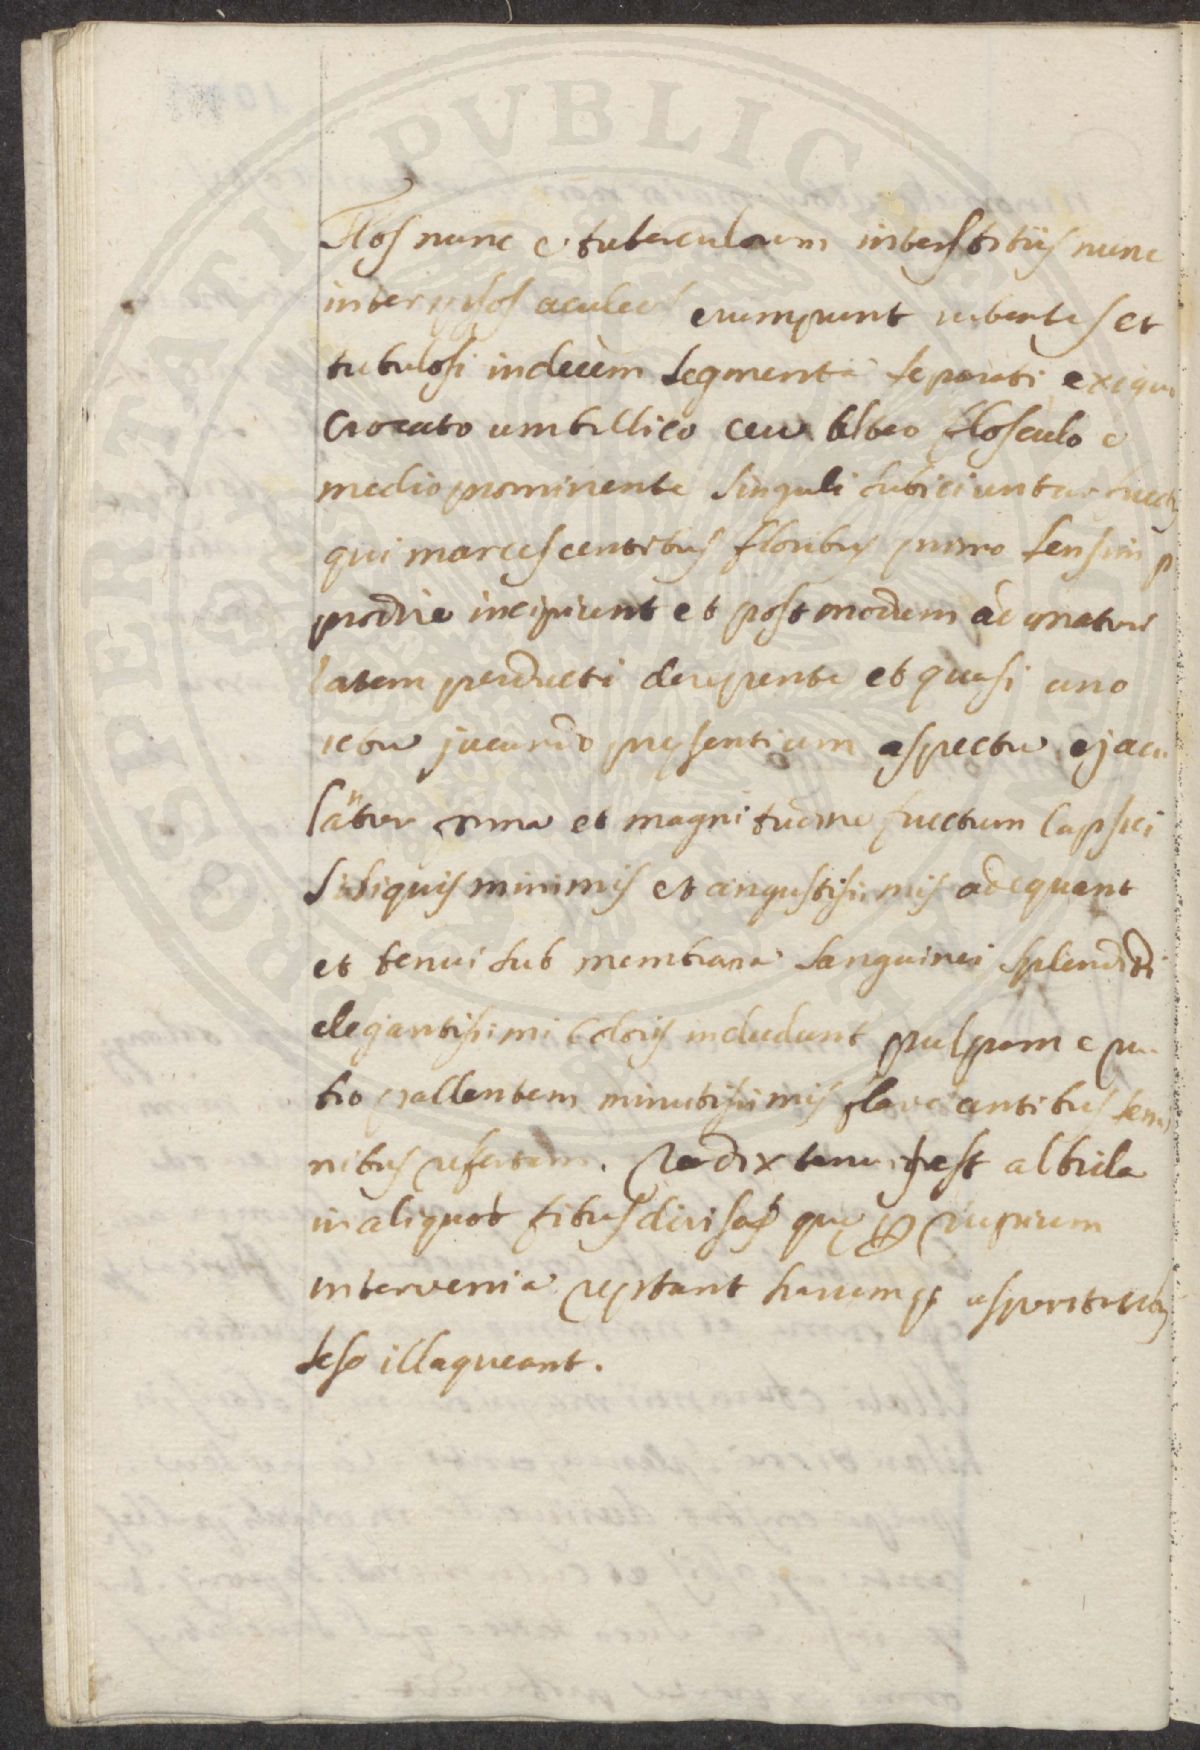 Flos nunc e tuberculorum interstitiis nunc
inter ipsos aculeos erumpunt rubentes et
tubulosi in decem segmenta separati exiguo
crocato umbillico ceu alteo flosculo e
medio prominente singuli subiciuntur fructus
qui marcescentibus floribus primo sensim
prodire incipiunt et postmodum ad maturi
tatem perducti derepente et quasi uno
ictu jucundo presentium aspectu ejacu
lantur forma et magnitudine fructum Capsici
siliquis minimis et angustissimis adequant
et tenui sub membrana sanguinei splendidi
elegantissimi coloris includunt pulpam e pu
tio pallentem minutissimis flavicantibus semi
nibus refertam. Radix tenuis est albida
in aliquot fibras divisa que per rupium
intervenia reptant harumque asperitatibus
sese illaqueant.
PROSPERITATI PUBLICAE